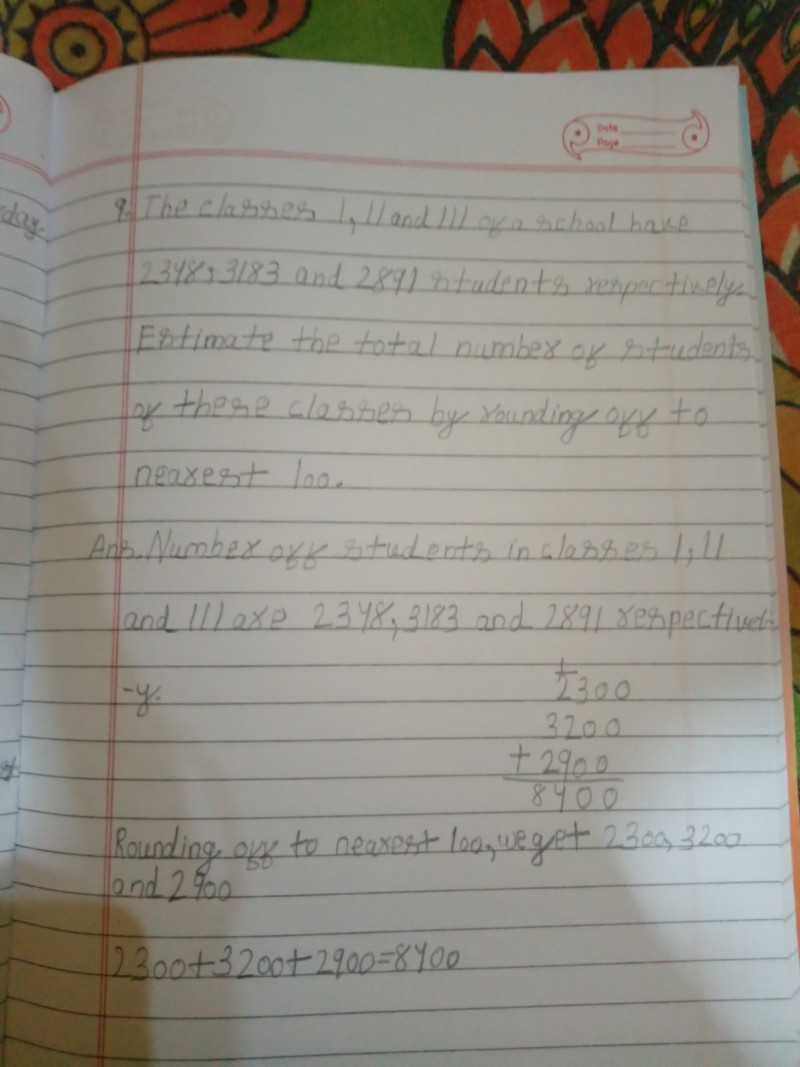 Date
Page
day.
9. The classes I, II and III of a school have
2348, 3183 and 2891 students respectively.
Estimate the total number of students
of these classes by rounding off to
nearest 100.
Ans. Number off students in classes I, II
and III are 2348, 3183 and 2891 respectivel-
-y.
1
2300
3200
+ 2900
8400
Rounding off to nearest 100, we get 2300, 3200
and 2900
2300+3200+2900=8400